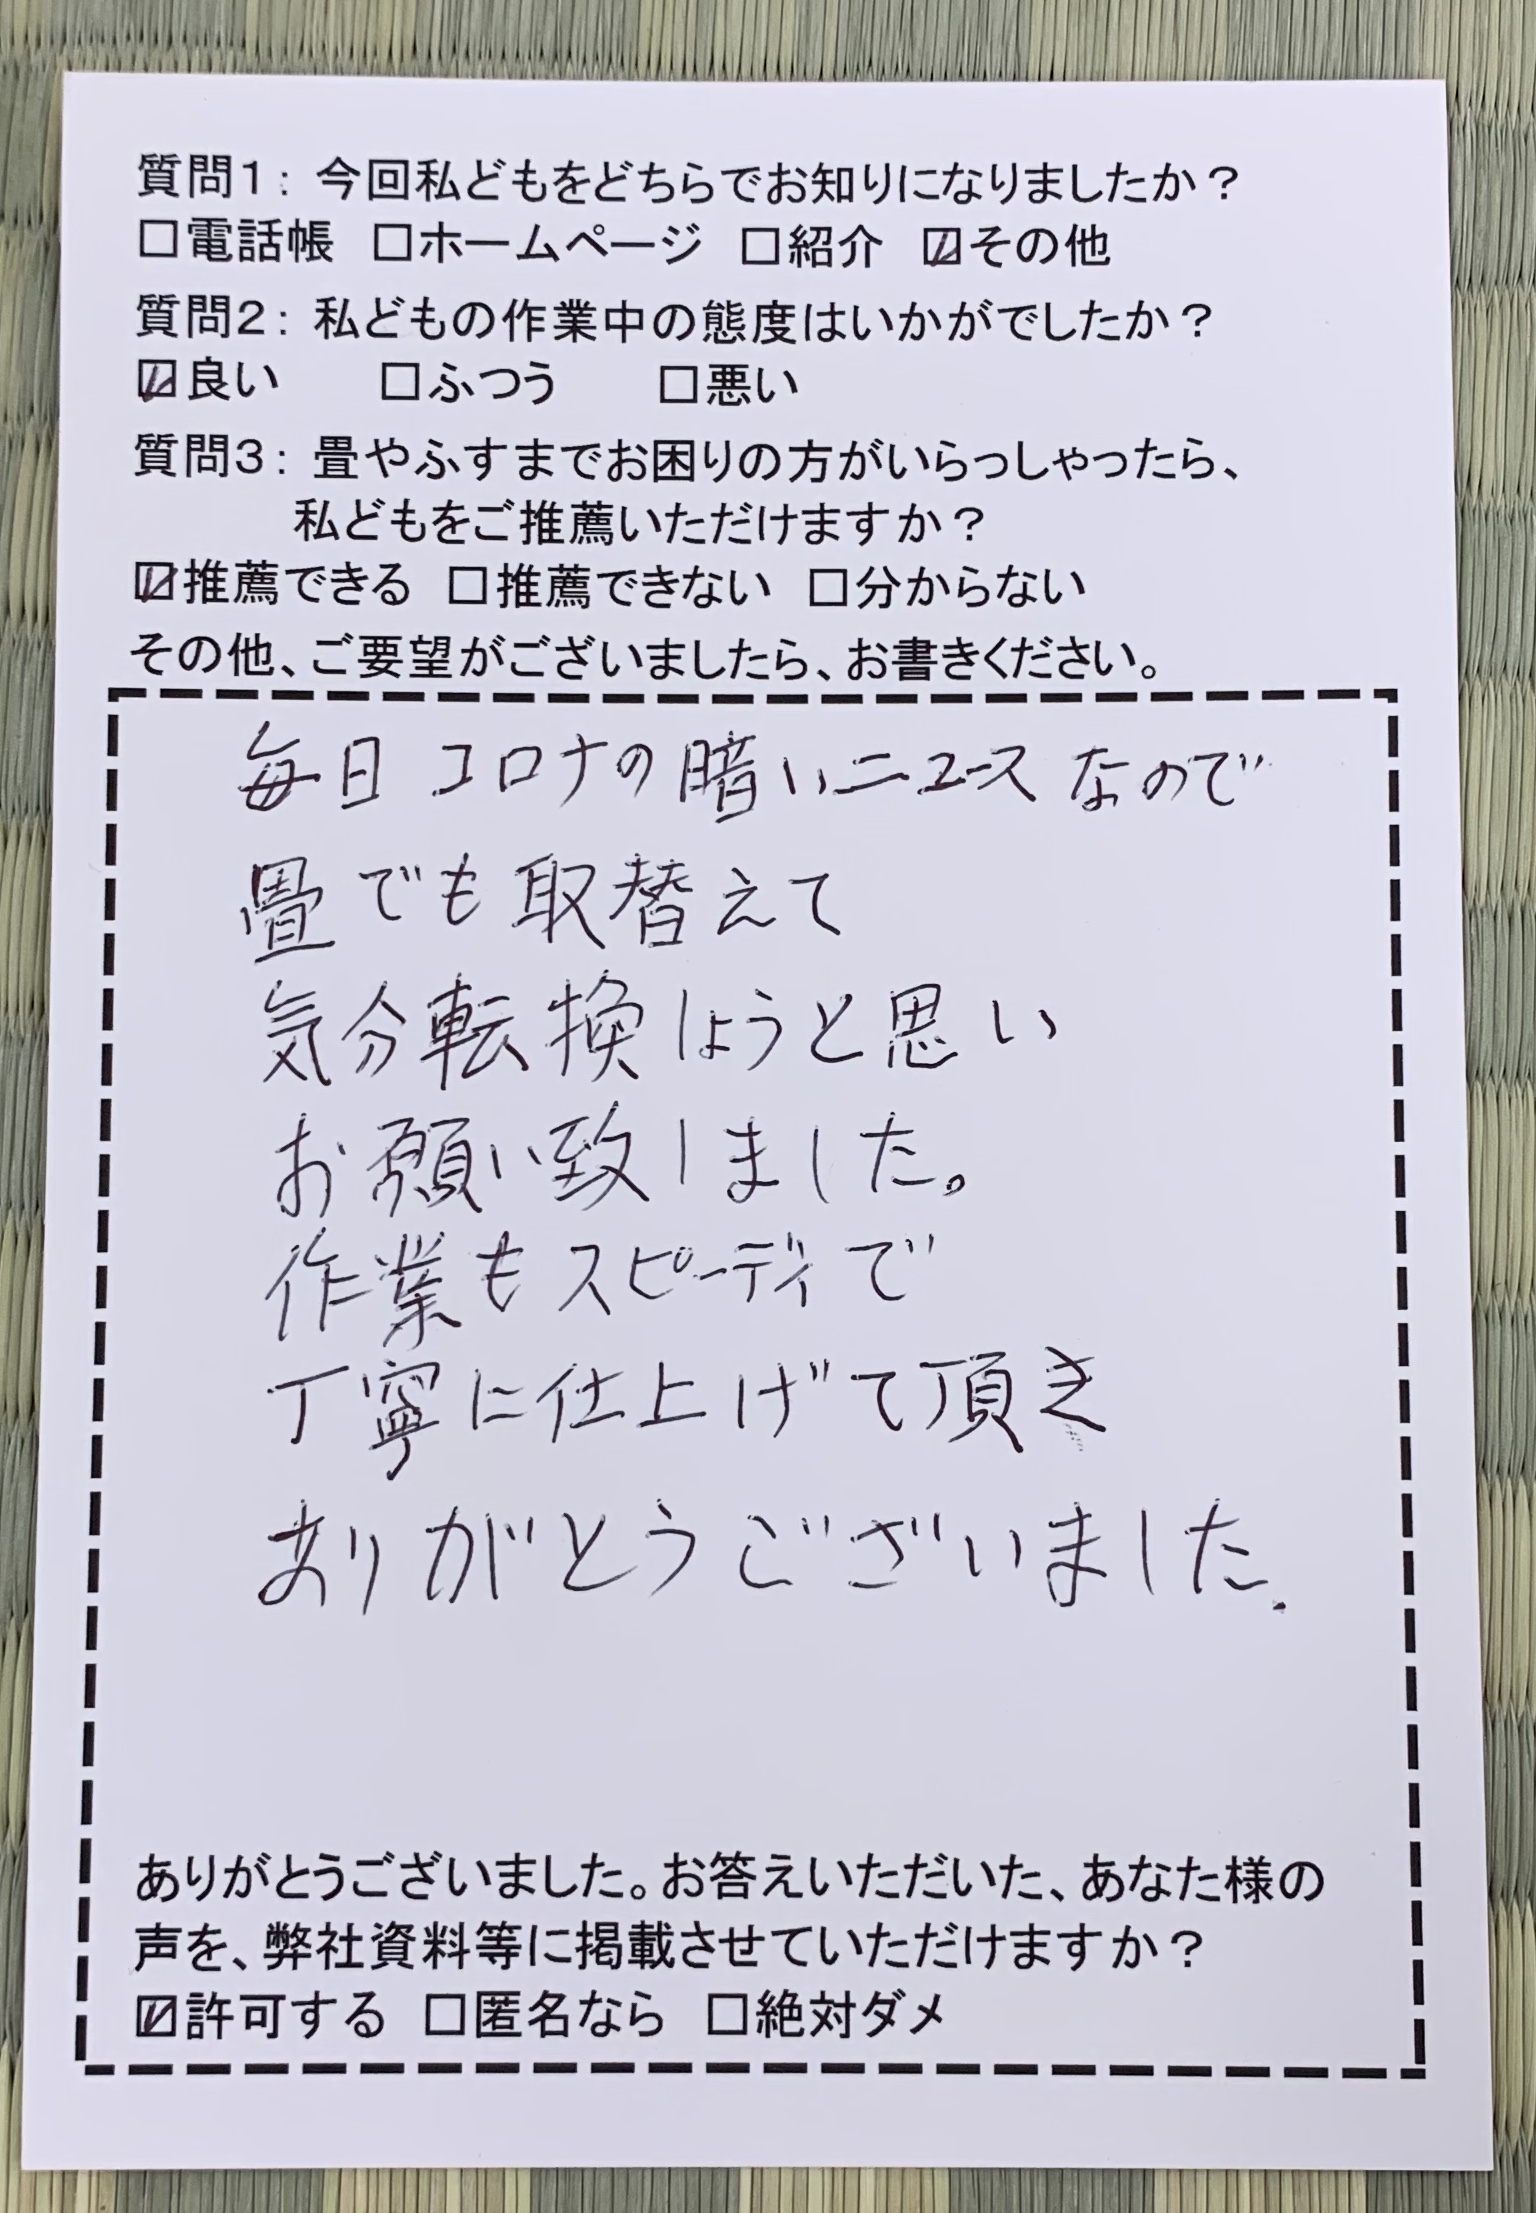 質問1: 今回私どもをどちらでお知りになりましたか?
□電話帳 □ホームページ □紹介 ☑その他
質問2: 私どもの作業中の態度はいかがでしたか?
☑良い □ふつう □悪い
質問3: 畳やふすまでお困りの方がいらっしゃったら、
私どもをご推薦いただけますか?
☑推薦できる □推薦できない □分からない
その他、ご要望がございましたら、お書きください。
毎日コロナの暗いニュースなので
畳でも取替えて
気分転換しょうと思い
お願い致しました。
作業もスピーディで
丁寧に仕上げて頂き
ありがとうございました.
ありがとうございました。お答えいただいた、あなた様の
声を、弊社資料等に掲載させていただけますか?
☑許可する □匿名なら □絶対ダメ